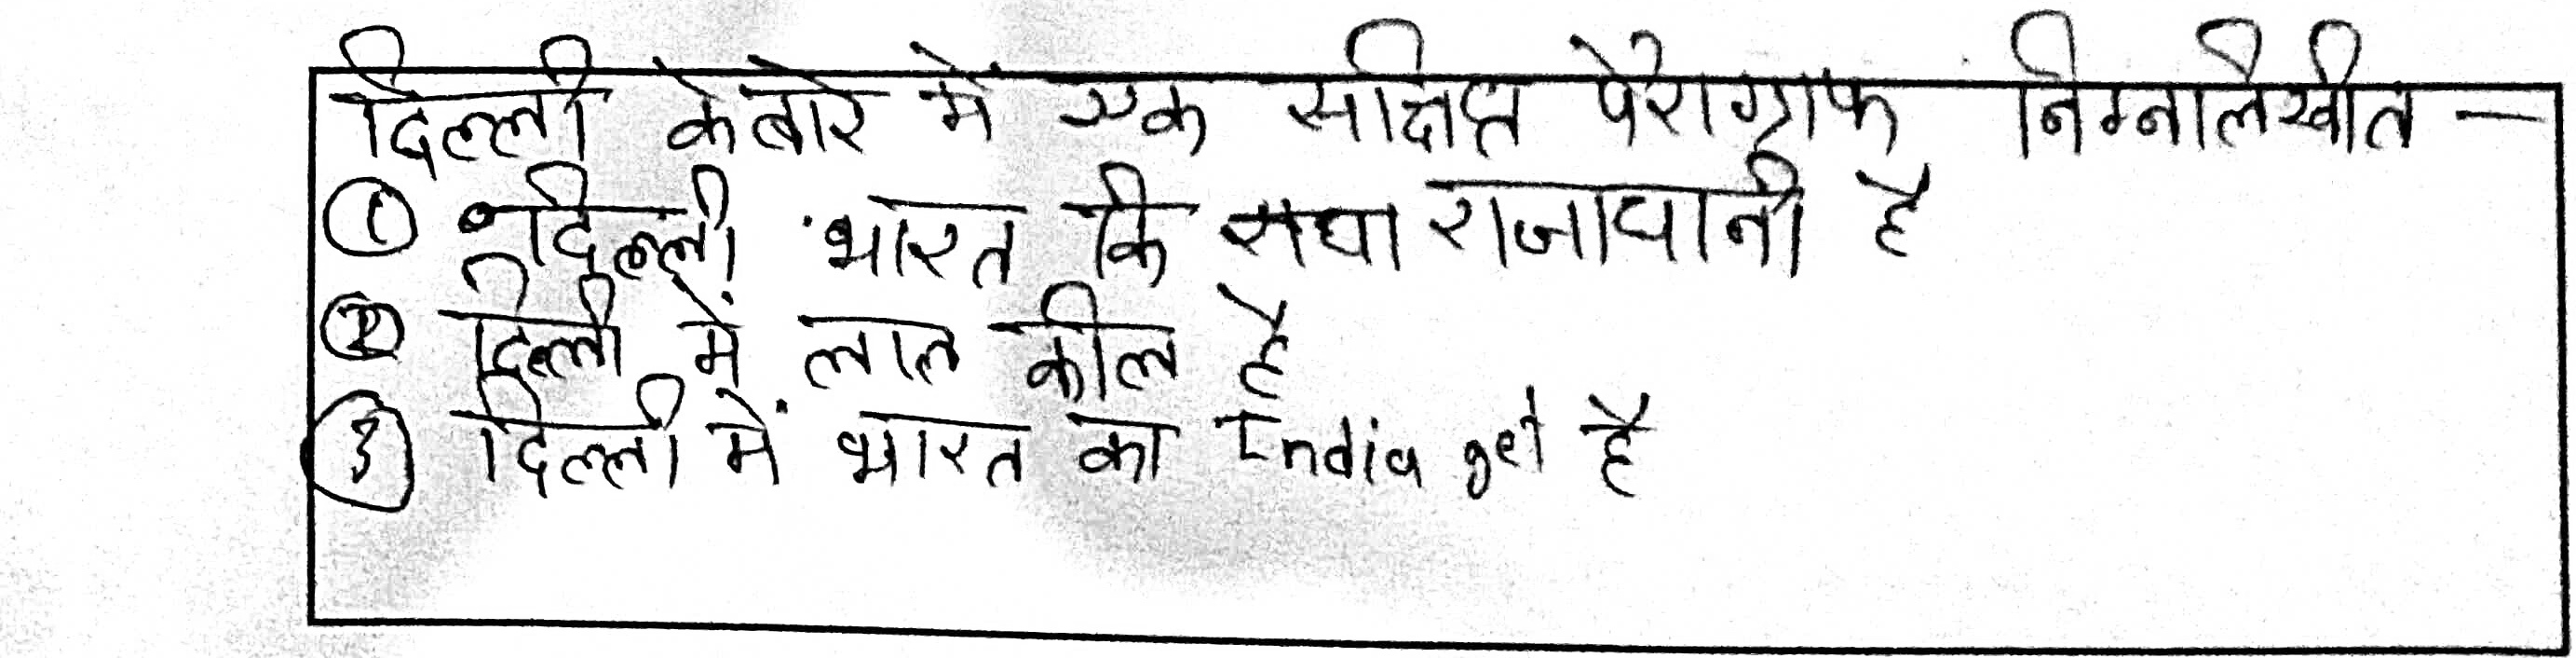 दिल्ली के बारे में एक सक्षिप्त पैराग्राफ निम्नलिखीत -
① दिल्ली भारत कि राजाधानी है
② दिल्ली में लाल कील है
③ दिल्ली में भारत का India get है